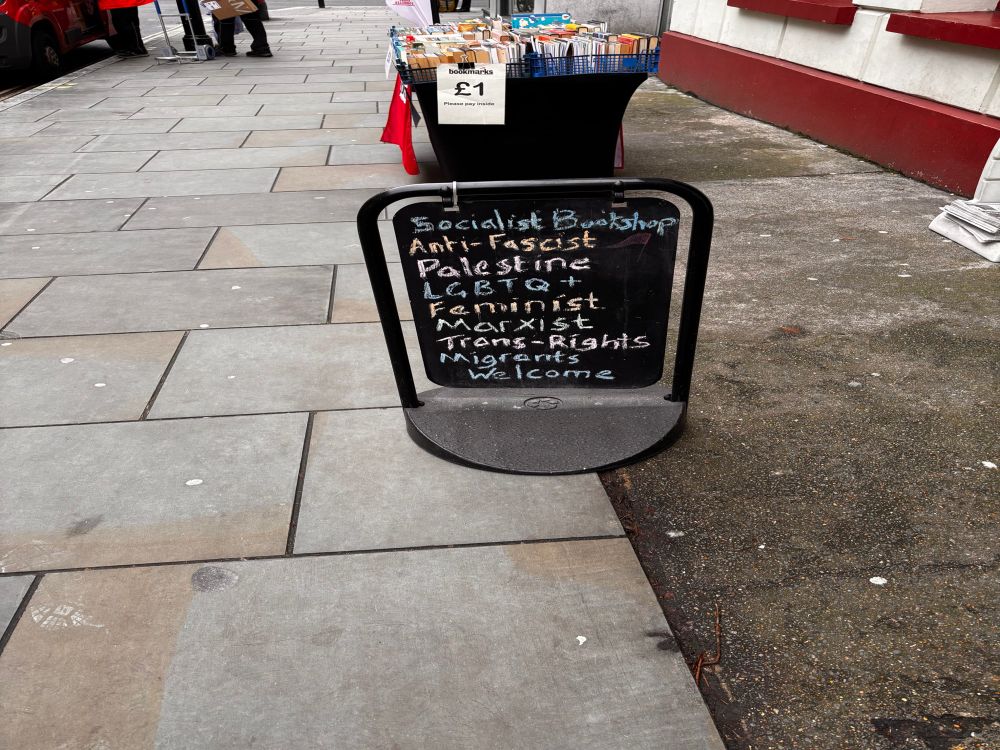 bookmarks
£1
Please pay inside
Socialist Bookshop
Anti-Fascist
Palestine
LGBTQ+
Feminist
Marxist
Trans-Rights
Migrants
Welcome